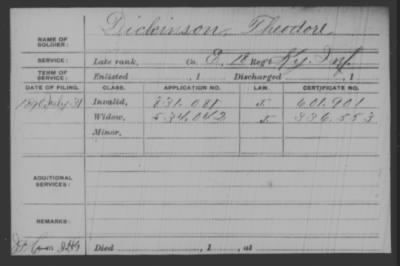 Dickinson, Theodore
NAME OF SOLDIER:
SERVICE: Late rank, Co. E, 18 Reg't Ky. Inf.
TERM OF SERVICE: Enlisted , 1 Discharged , 1
DATE OF FILING. CLASS. APPLICATION NO. LAW. CERTIFICATE NO.
July 31 Invalid, 831.081 J 601.901
Widow, 534.042 J 336.553
Minor,
ADDITIONAL SERVICES:
REMARKS:
Died , 1 , at